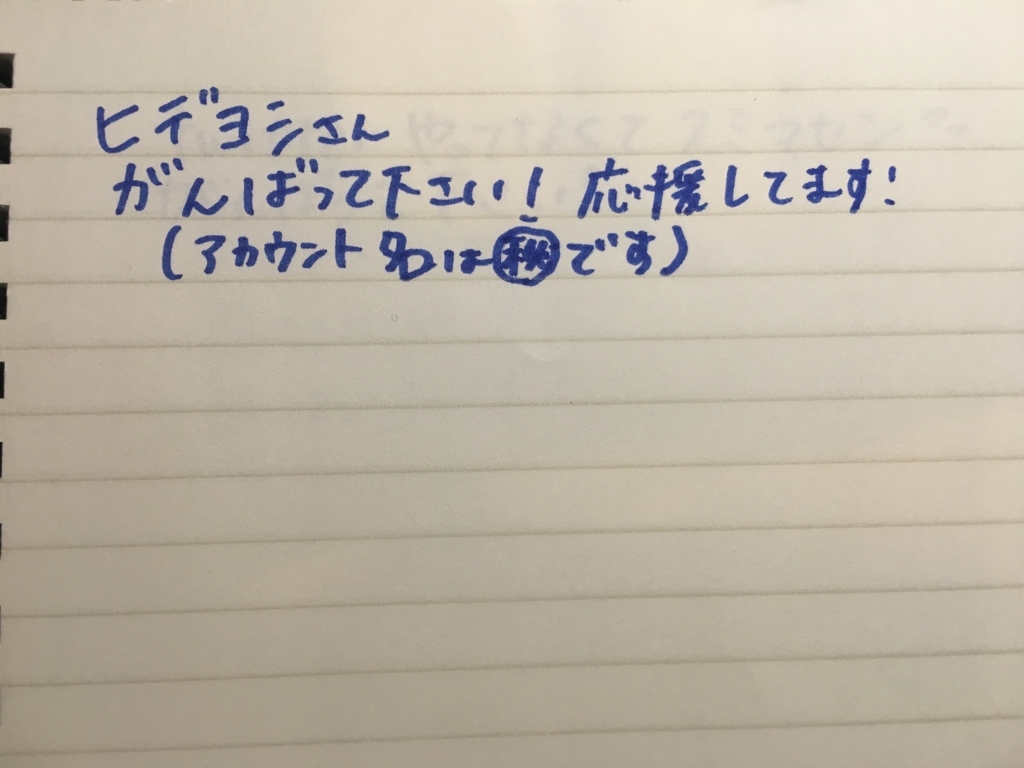 ヒデヨシさん
がんばって下さい! 応援してます!
(アカウント名は㊙です)